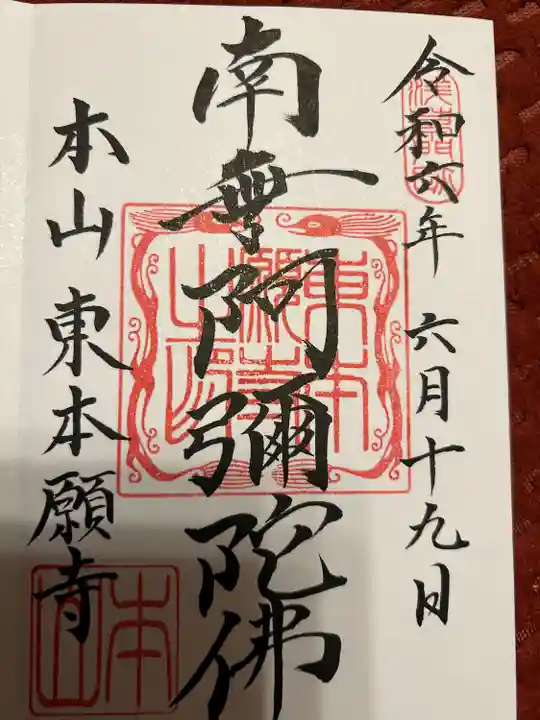 令和六年 六月十九日
南無阿彌陀佛
本山 東本願寺
東本願寺之印
本山